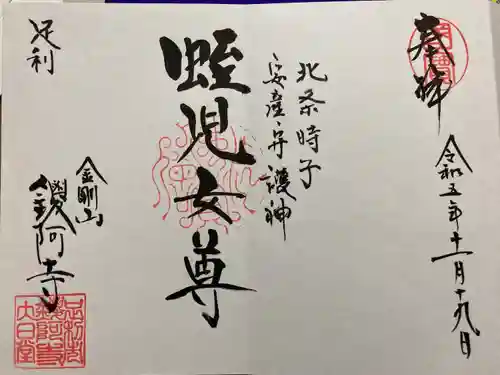 奉拝
令和五年十一月十九日
北条時子
安産守護神
蛭児女尊
足利
金剛山
鑁阿寺
足利
鑁阿寺
大日堂